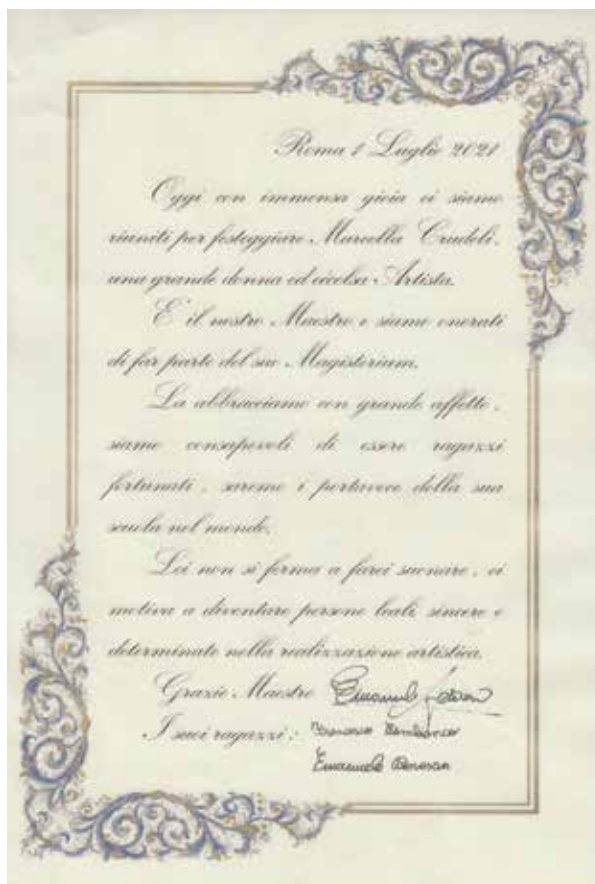 Roma 1 Luglio 2021
Oggi con immensa gioia ci siamo
riuniti per festeggiare Marcella Crudeli,
una grande donna ed eccelsa Artista.
E' il nostro Maestro e siamo onorati
di far parte del suo Magisterium.
La abbracciamo con grande affetto,
siamo consapevoli di essere ragazzi
fortunati, saremo i portavoce della sua
scuola nel mondo.
Lei non si ferma a farci suonare, ci
motiva a diventare persone leali sincere e
determinate nella realizzazione artistica.
Grazie Maestro Emanuele
I suoi ragazzi:
Emanuele